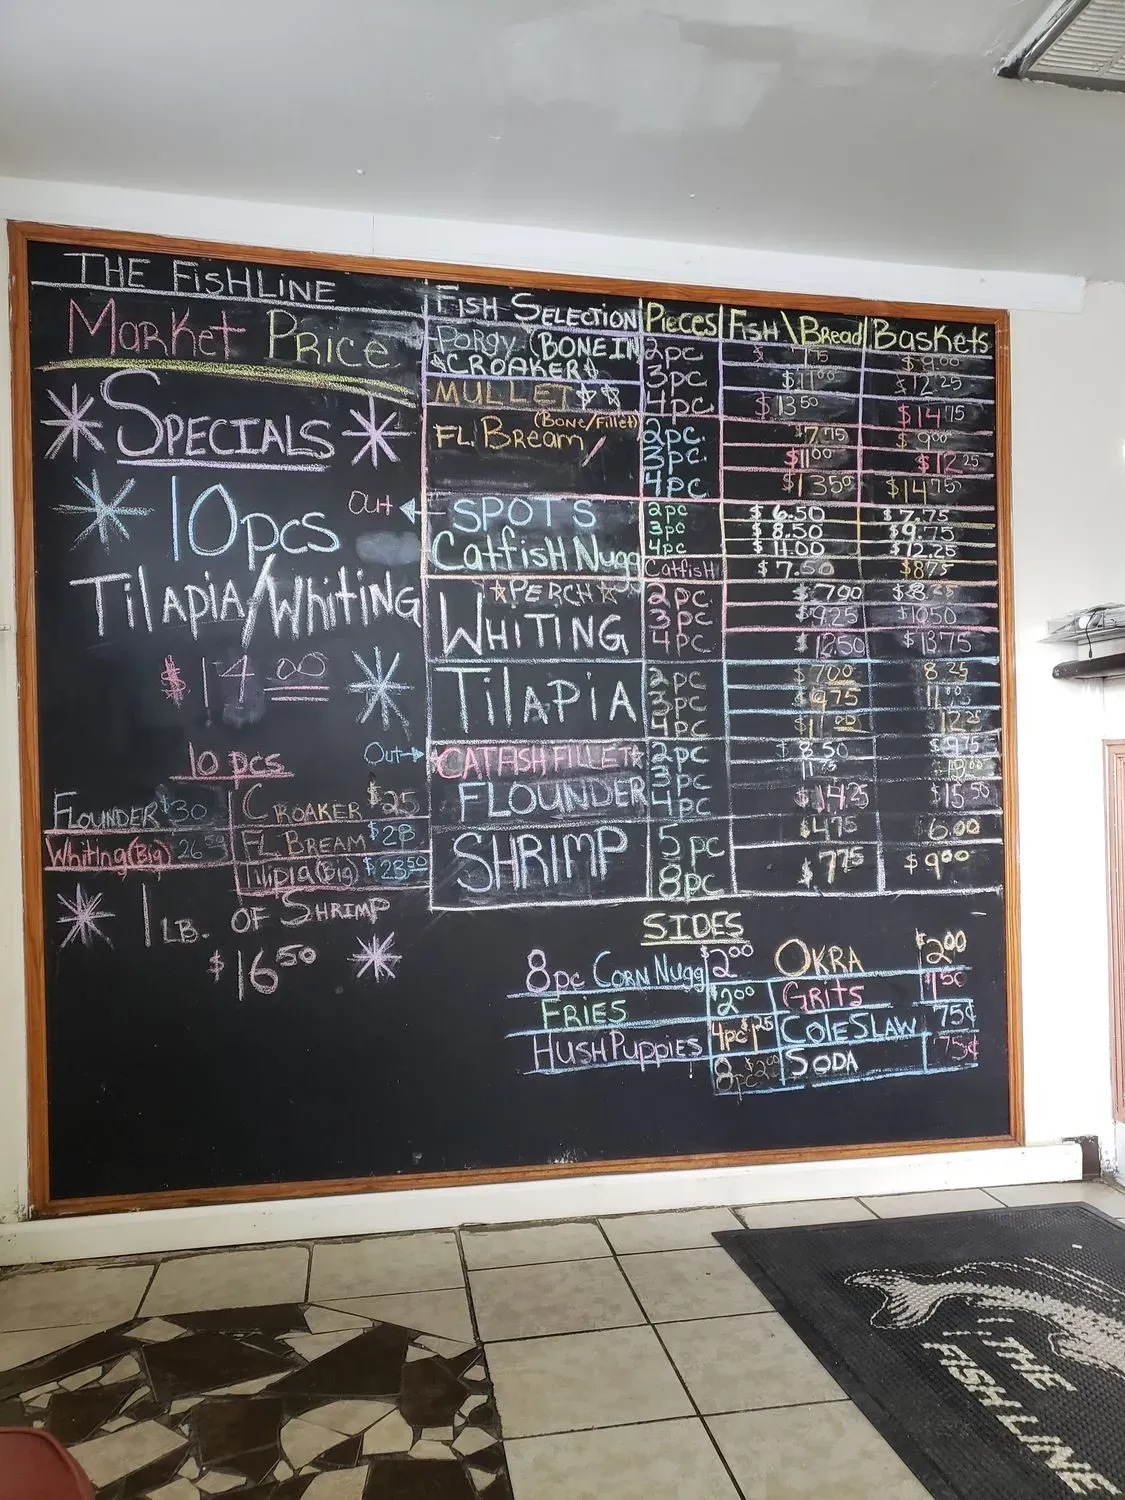 THE FISHLINE
Market Price
SPECIALS
10pcs
Tilapia/Whiting
$14.00
10 pcs
Flounder $30 Croaker $25
Whiting(Big) FL. Bream $28
Tilipia(Big) $23.50
1 LB. OF SHRIMP
$16.50
Fish Selection Pieces Fish\Bread Baskets
Porgy (BONE IN 2pc $9.00
CROAKER 3pc $11.00 $12.25
MULLET 4pc $13.50 $14.75
FL. Bream (Bone/Fillet) 2pc. $7.75 $9.00
3pc. $11.00 $12.25
4pc $13.50 $14.75
Out SPOTS 2pc $6.50 $7.75
3pc $8.50 $9.75
CatfisH Nugg 4pc $11.00 $12.25
Catfish $7.50 $8.75
PERCH 2pc. $7.00 $8.25
WHITING 3pc $9.25 $10.50
4pc $12.50 $13.75
TilAPiA 2pc $7.00 8.25
3pc $9.75 11.00
4pc
Out CATFISH FILLET 2pc $8.50 $9.75
3pc
FLOUNDER 4pc $14.25 $15.50
SHRIMP 5pc $4.75 6.00
8pc $7.75 $9.00
SIDES
8pc Corn Nugg $2.00 OKRA $2.00
FRIES $2.00 GRITS $1.50
HUSH PUPPIES 4pc $1.25 COLESLAW 75¢
8pc $2.00 SODA 75¢
THE
FISH LINE